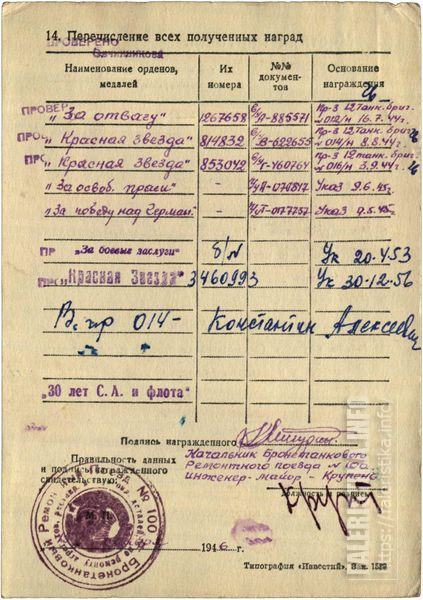 14. Перечисление всех полученных наград
ПРОВЕРЕНО
Овчинникова
Наименование орденов, медалей
Их номера
№№ документов
Основание награждения
ПРОВЕР „За отвагу" 1267658 б/п-885571 Пр-з 12 танк. бриг. №012/н 16.7.44г.
ПРО „Красная звезда" 814832 622655 Пр-з 12 танк. бриг. №014/н 8.8.44г.
ПРО „Красная звезда" 853042 460764 Пр-з 12 танк. бриг. №016/н 3.9.44г.
„За освоб. праги" - Указ 9.6.45г.
„За победу над Герман" - 0177757 Указ 9.5.45г.
ПР „За боевые заслуги" б/н Ук 20.4.53
„Красная Звезда" 3460993 Ук 30.12.56
014- Константин Алексеевич
„30 лет С.А. и флота"
Подпись награжденного
Правильность данных
и подписи награжденного
свидетельствую:
Начальник бронетанкового
Ремонтного поезда № 100
инженер-майор - Крупен
Должность и подпись
Бронетанковый Ремон Поезд № 100
М. П.
1946 г.
Типография «Известий». Зак. 1522
FALERISTIKA.INFO
https://faleristika.info